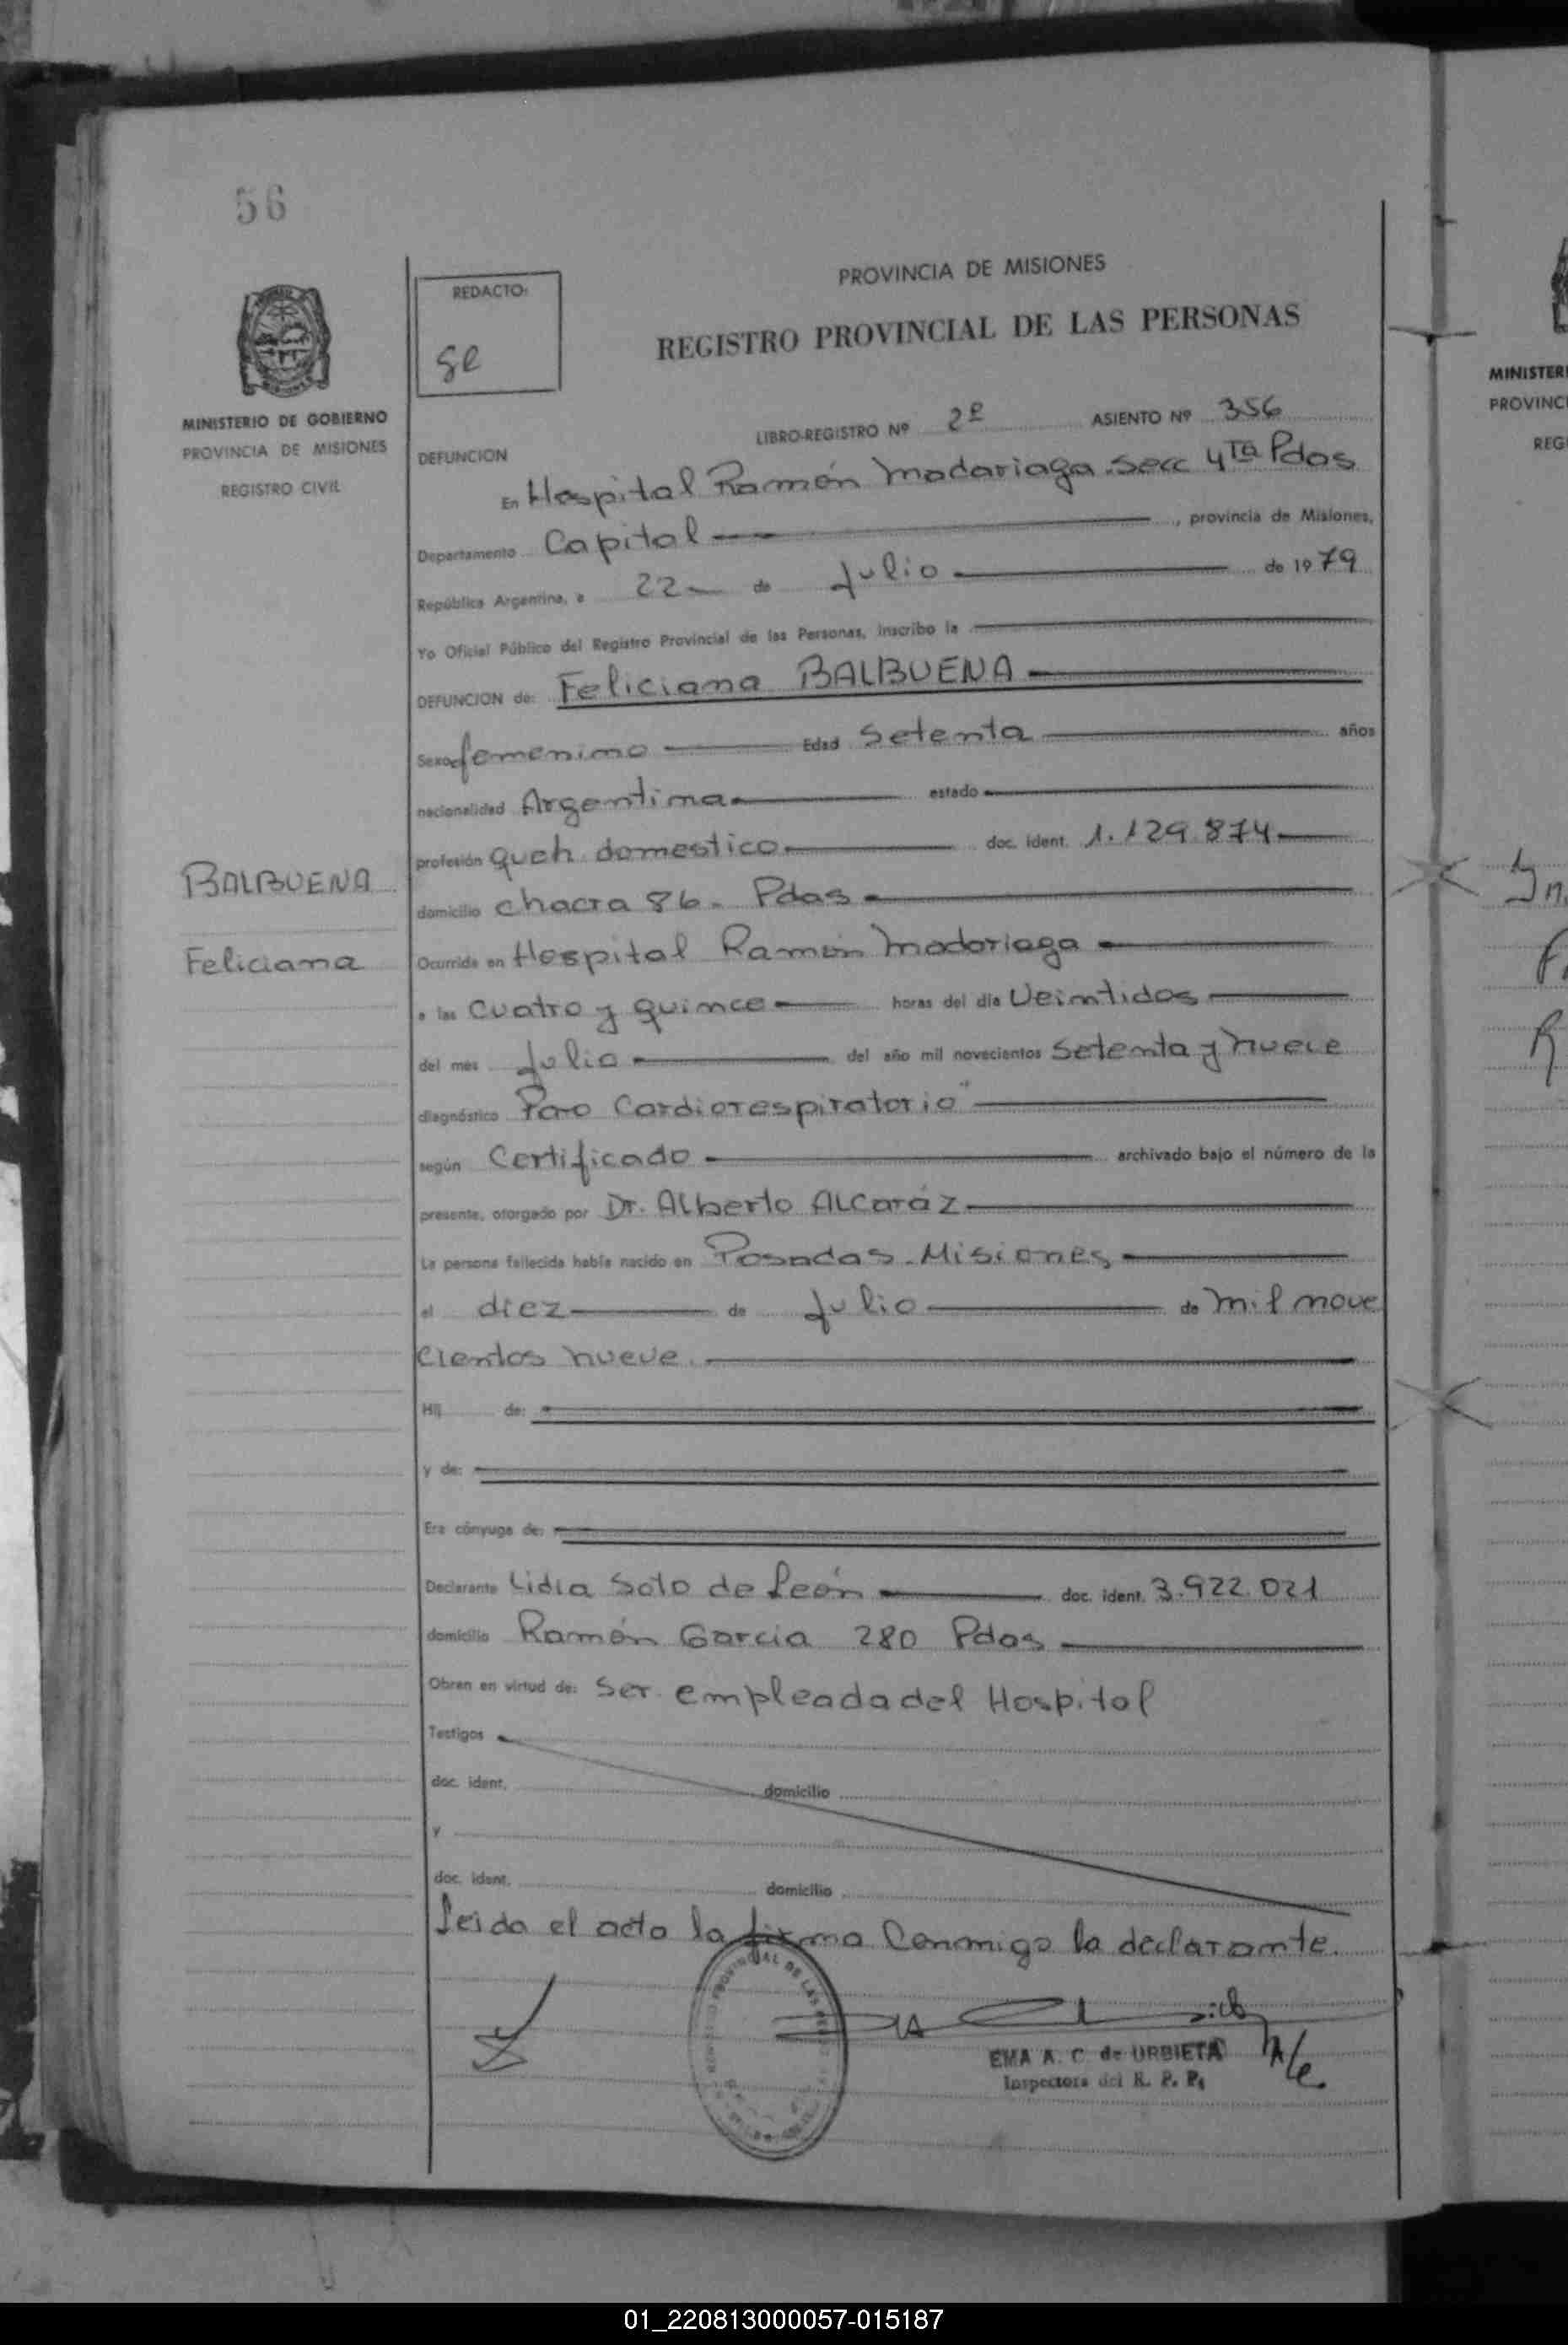 56
PROVINCIA DE MISIONES
REGISTRO PROVINCIAL DE LAS PERSONAS
REDACTO:
MINISTERIO DE GOBIERNO
PROVINCIA DE MISIONES
REGISTRO CIVIL
LIBRO-REGISTRO Nº 2º ASIENTO Nº 356
DEFUNCION
En Hospital Ramón Madariaga. Secc 4Ta Pdas
Departamento Capital , provincia de Misiones,
República Argentina, a 22 de Julio de 1979
Yo Oficial Público del Registro Provincial de las Personas, inscribo la
DEFUNCION de: Feliciana BALBUENA
Sexo femenino Edad Setenta años
nacionalidad Argentina estado
profesión queh. domestico doc. ident. 1.129.874
BALBUENA
Feliciana
domicilio chacra 86. Pdas
Ocurrida en Hospital Ramón Madariaga
a las Cuatro y quince horas del día Veintidos
del mes Julio del año mil novecientos Setenta y nueve
diagnóstico Paro Cardiorespiratorio"
según Certificado archivado bajo el número de la
presente, otorgado por Dr. Alberto Alcaráz
La persona fallecida había nacido en Posadas. Misiones
el diez de Julio de mil nove
cientos nueve.
Hij de:
y de:
Era cónyuge de:
Declarante Lidia Soto de León doc. ident. 3.922.021
domicilio Ramón Garcia 280 Pdas
Obran en virtud de: Ser empleada del Hospital
Testigos
doc. ident. domicilio
y
doc. ident. domicilio
Leida el acta la firma Conmigo la declarante.
EMA A. C. de URBIETA
Inspectora del R. P. P.
MINISTERI
PROVINCI
REG
01_220813000057-015187